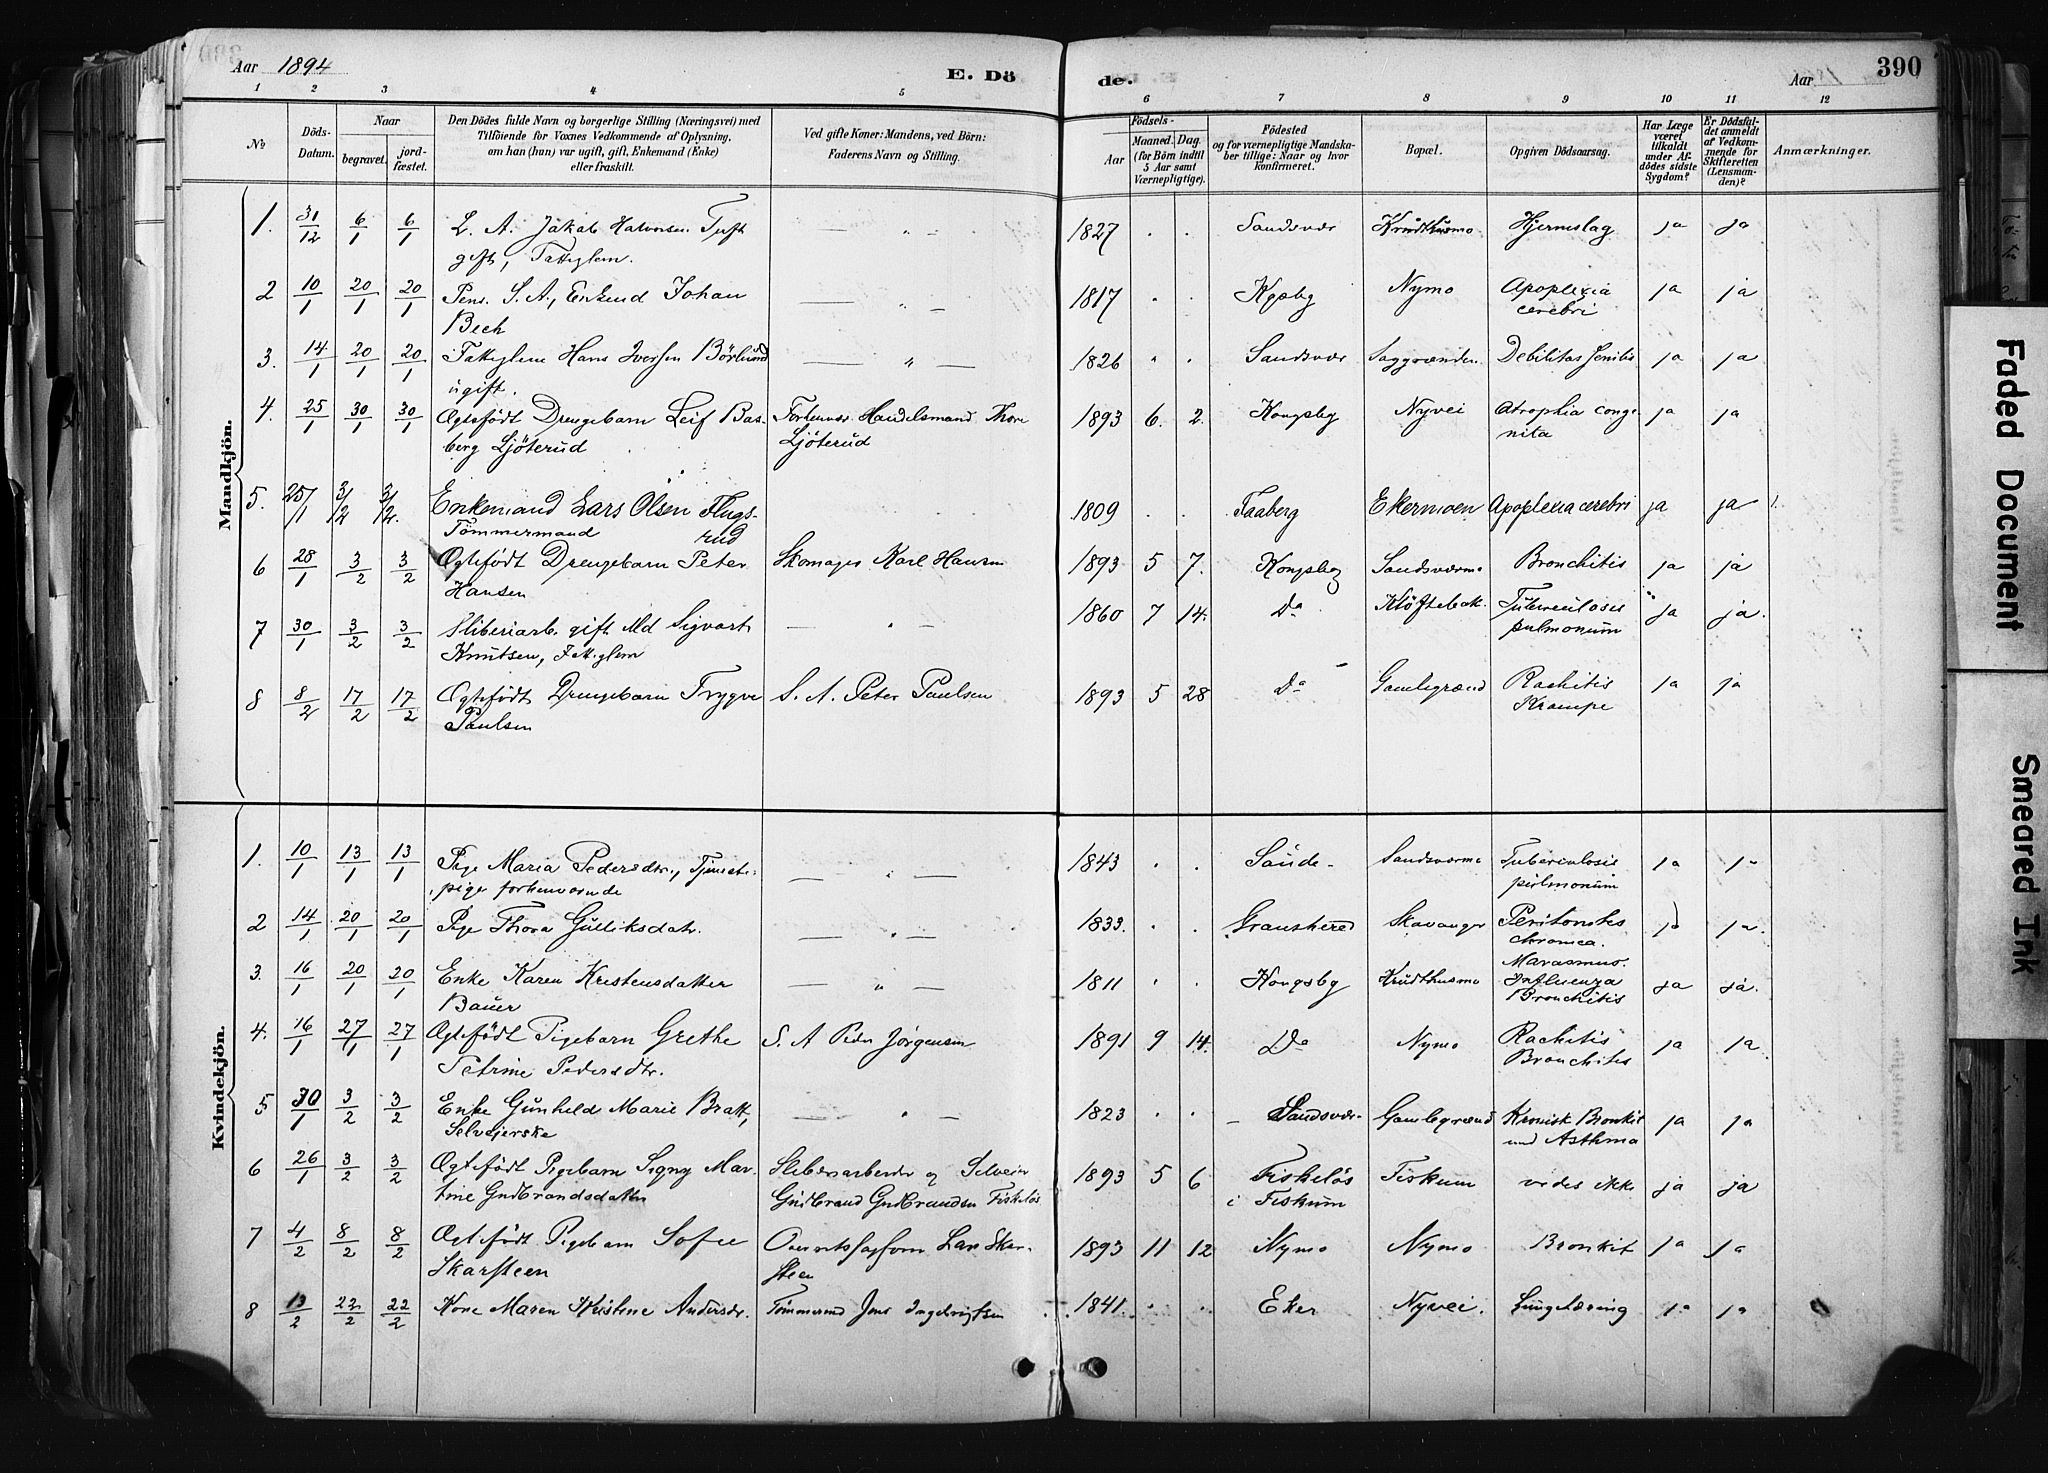 Aar 1894
E. Dö
de.
Aar
390
1 2 3 4 5 6 7 8 9 10 11 12
No
Döds-Datum.
Naar
begravet.
jordfæstet.
Den Dödes fulde Navn og borgerlige Stilling (Næringsvei) med
Tilföiende for Voxnes Vedkommende af Oplysning,
om han (hun) var ugift, gift, Enkemand (Enke)
eller fraskilt.
Ved gifte Koner: Mandens, ved Börn:
Faderens Navn og Stilling.
Födsels-
Aar
Maaned. Dag.
(for Börn indtil
5 Aar samt
Værnepligtige).
Födested
og for værnepligtige Mandska-
ber tillige: Naar og hvor
konfirmeret.
Bopæl.
Opgiven Dödsaarsag.
Har Læge
været
tilkaldt
under Af-
dödes sidste
Sygdom?
Er Dödsfal-
det anmeldt
af Vedkom-
mende for
Skifteretten
(Lensman-
den)?
Anmærkninger.
Mandkjön.
1. 31/12 6/1 6/1 L. A. Jakob Halvorsen Tuft — " — 1827 . . Sandsvær Krudthusmo Hjerneslag ja ja
gift, Fattiglem.
2 10/1 20/1 20/1 Pens. S. A., Enkemd Johan — " — 1817 . . Kgsbg Nymo Apoplexia ja ja
Bech cerebri
3. 14/1 20/1 20/1 Fattiglem Hans Iversen Börlund — " — 1826 " . Sandsvær Saggrænden Debilitas senilis ja ja
ugift.
4. 25/1 30/1 30/1 Ægtefödt Drengebarn Leif Bas- Forhenvær. Handelsmand Thore 1893 6. 2. Kongsbg Nyvei Atrophia conge ja ja
berg Ljöterud Ljöterud nita
5. 25/1 3/2 3/2. Enkemand Lars Olsen Flugs- 1809 . . Faaberg Ekermoen Apoplexia cerebri ja ja
Tömmermand rud
6 28/1 3/2 3/2 Ægtefödt Drengebarn Peter Skomager Karl Hansen 1893 5 7. Kongsbg Sandsværmo Bronchitis ja ja
Hansen
7 30/1 3/2 3/2 Sliberiarb. gift Md Sigvart — " — 1860 7 14. Do Klöftebek. Tuberculosis ja ja.
Knutsen, Fattiglem pulmonum
8 8/2 17/2 17/2 Ægtefödt Drengebarn Trygve S. A. Peter Paulsen 1893 5 28 Do Gamlegrænd Rachitis ja ja
Paulsen Krampe
Kvindekjön.
1. 10/1 13/1 13/1 Pige Maria Pedersdtr., Tjeneste- — " — 1843 . . Sande Sandsværmo Tuberculosis ja ja
pige forhenværende pulmonum
2 14/1 20/1 20/1 Pige Thora Gulliksdatr. — " — 1833. . . Gransherred Skavanger Peritonitis ja ja
chronica.
Marasmus.
3. 16/1 20/1 20/1 Enke Karen Kristensdatter — " — 1811 . . Kongsbg Krudthusmo Influenza ja ja.
Bauer Bronchitis
4. 16/1 27/1 27/1 Ægtefödt Pigebarn Grethe S. A Peder Jörgensen 1891 9 14. Do Nymo Rachitis ja ja
Petrine Pedersdtr. Bronchitis
5 30/1 3/2 3/2 Enke Gunhild Marie Bratt, — " — 1823 . . Sandsvær Gamlegrænd Kronisk Bronkit ja ja
Selveierske med Asthma
6 26/1 3/2 3/2 Ægtefödt Pigebarn Signy Mar- Sliberiarbeider og Selveier 1893 5 6 Fiskelös Fiskum vides ikke ja ja
tine Gudbrandsdatter Gudbrand Gudbrandsen Fiskelös i Fiskum
7 4/2 8/2 8/2 Ægtefödt Pigebarn Sofie Lars Skar- 1893 11 12 Nymo Nymo Bronkit ja ja
Skarsteen steen
8 13/2 22/2 22/2 Kone Maren Kristene Andersdr. Tömmermd Jens Ingebrigtsen 1841. . . Eker Nyvei. Lungetæring ja ja
Faded Document
Smeared Ink